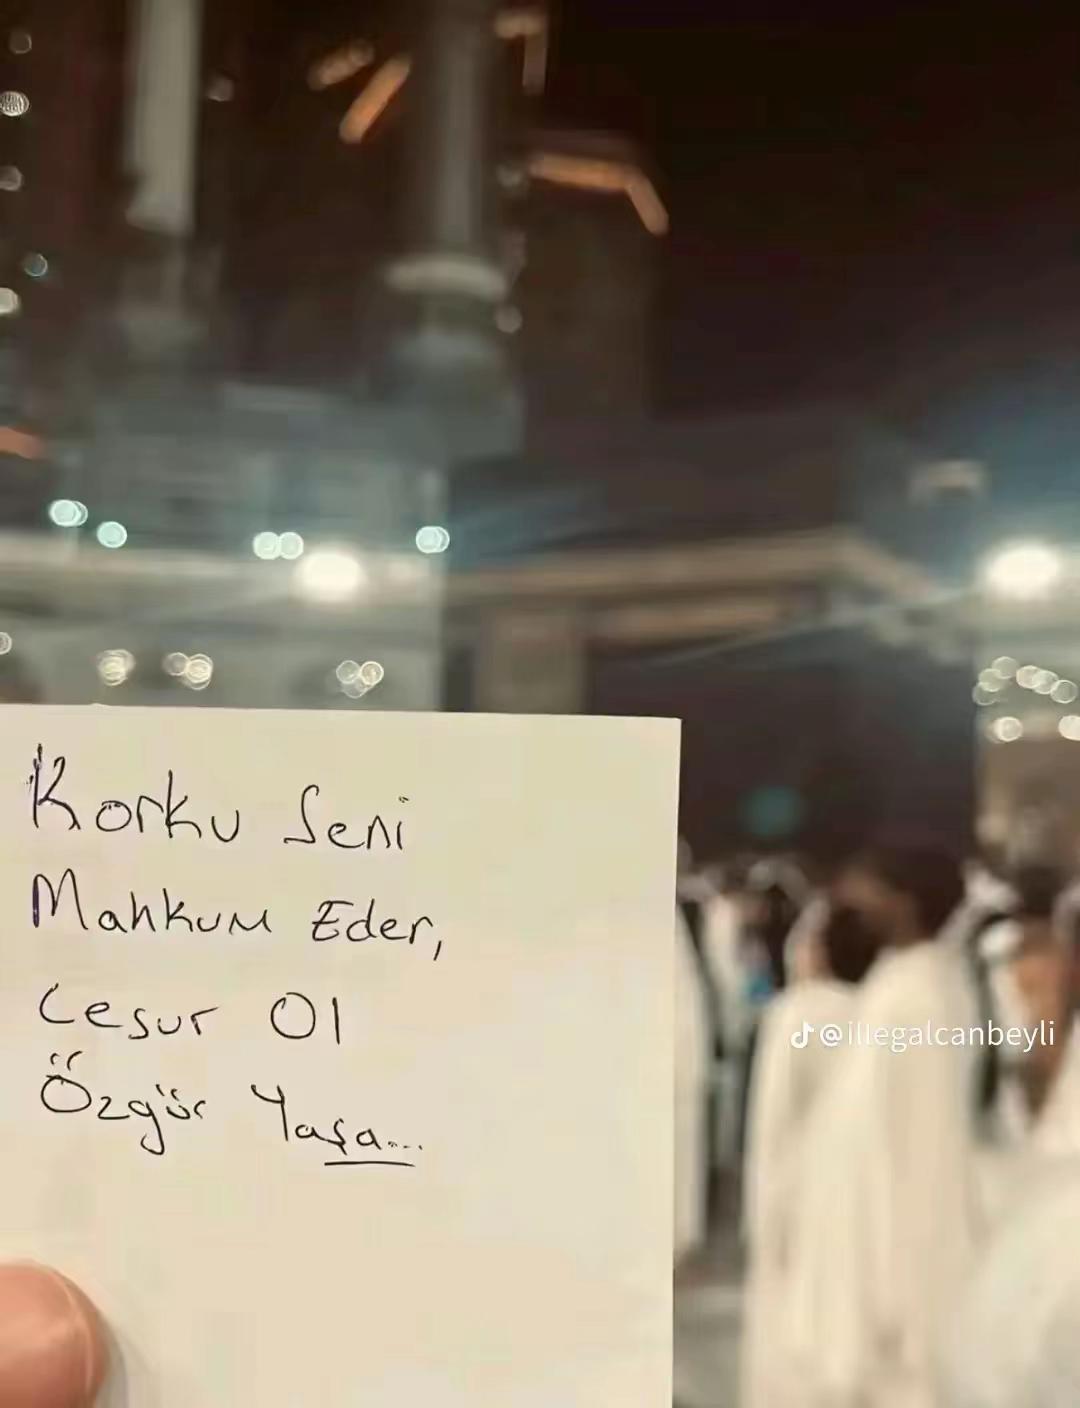 Korku Seni
Mahkum Eder,
Cesur Ol
Özgür Yaşa...
@illegalcanbeyli